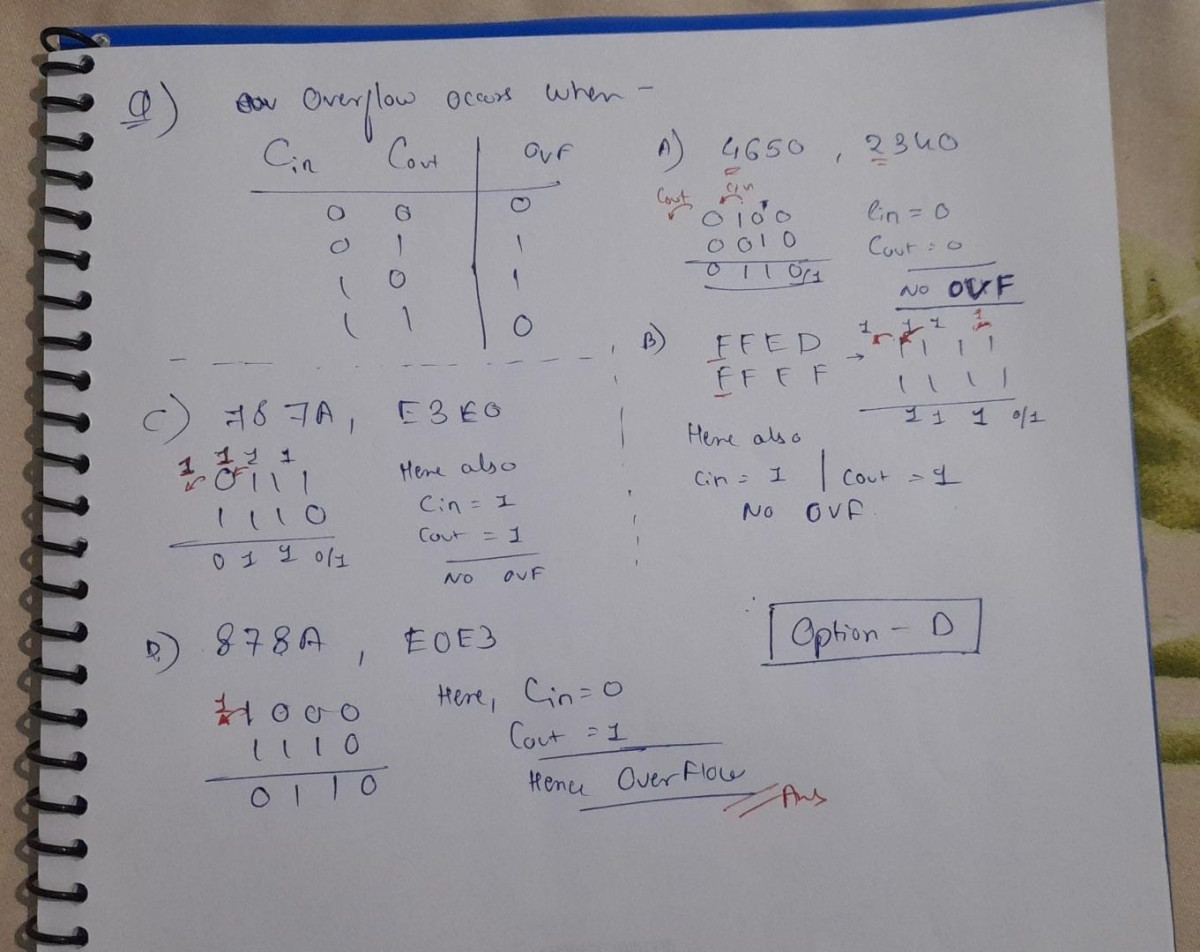 Q) Overflow occurs when -
Cin Cout OVF
0 0 0
0 1 1
1 0 1
1 1 0
A) 4650 , 2340
Cout Cin
0 1 0 0
0 0 1 0
0 1 1 0/1
Cin = 0
Cout = 0
No OVF
B) FFED →
FFFF
1 1 1 1
1 1 1 1
1 1 1 1
1 1 1 0/1
Here also
Cin = 1 | Cout = 1
No OVF.
C) 787A , E3E0
1 1 1 1
0 1 1 1
1 1 1 0
0 1 1 0/1
Here also
Cin = 1
Cout = 1
No OVF
D) 878A , E0E3
1
1 0 0 0
1 1 1 0
0 1 1 0
Here, Cin = 0
Cout = 1
Hence OverFlow
Ans
Option - D